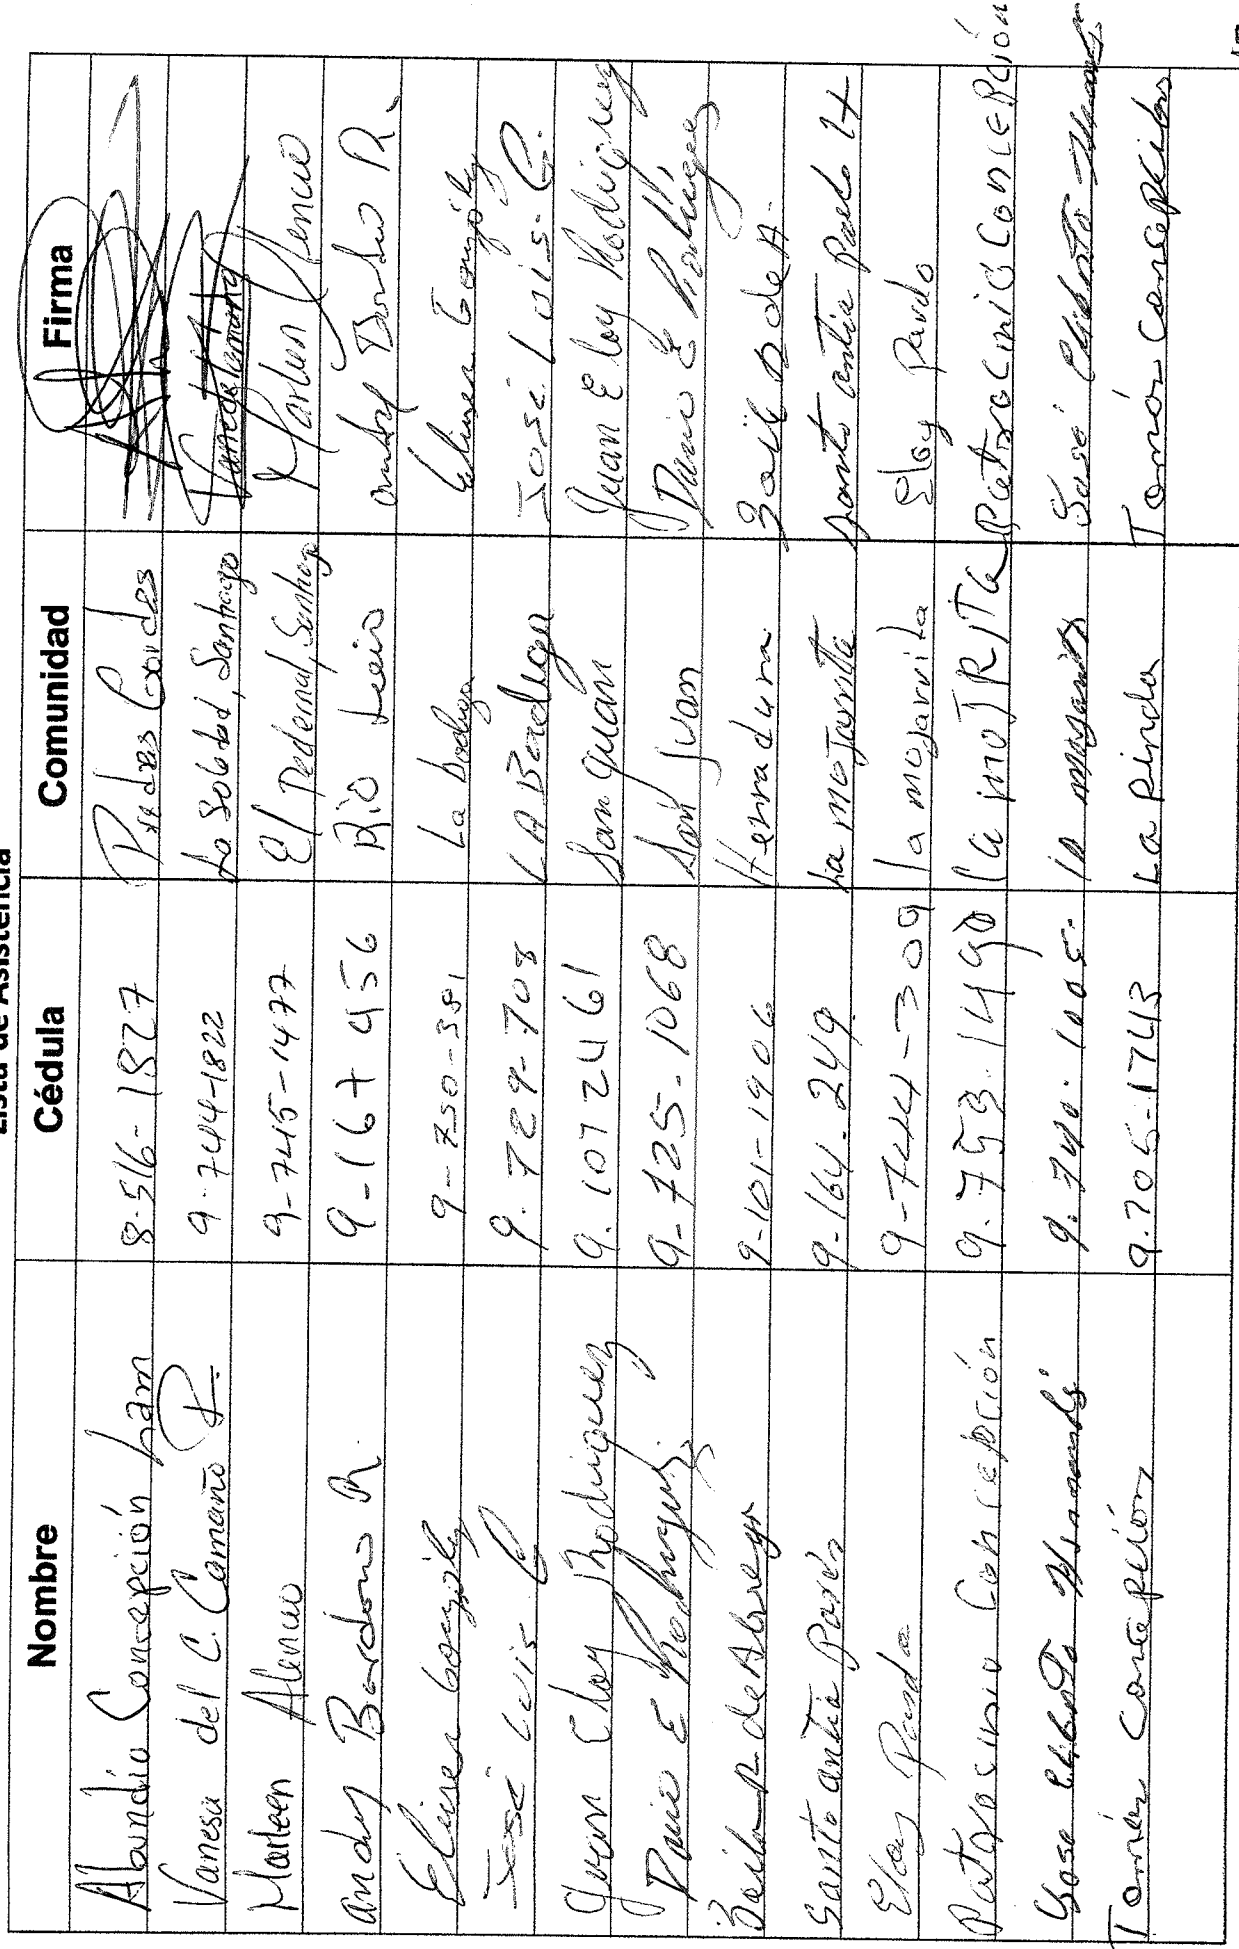 Lista de Asistencia
Nombre Cédula Comunidad Firma
Abundio Concepción Lam 8-516-1827
Vanesa del C. Camaño R. 9-744-1822 La Soledad, Santiago
Marleen Atencio 9-745-1477 El Pedernal, Santiago Marleen Atencio
Andy Bardono R. 9-167 956 Rio
Eliner González 9-750-381 La Bodega Eliner González
José Luis C 9.729-708 LA Bodega José Luis. C.
Juan Eloy Rodriguez 9.107 2461 San Juan Juan Eloy Rodriguez
Dario E Rodriguez 9-725-1068 San Juan Dario E Rodriguez
Zaila D. de Abrego 9-101-1906 Herradura Zaila D de A.
Santo 9-164.249 La mojarrita Santo
Eloy Pardo 9-744-309 la mojarrita Eloy Pardo
Patrocinio Concepción 9.753.1490 La moJRJTa Patrocinio Concepción
Jose 9.740.1005. la José
Tomás Concepción 9.705-1743 La Pinda Tomás Concepción